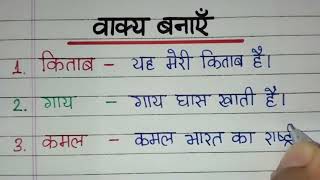 वाक्य बनाएँ
1. किताब – यह मेरी किताब है।
2. गाय – गाय घास खाती है।
3. कमल – कमल भारत का राष्ट्री